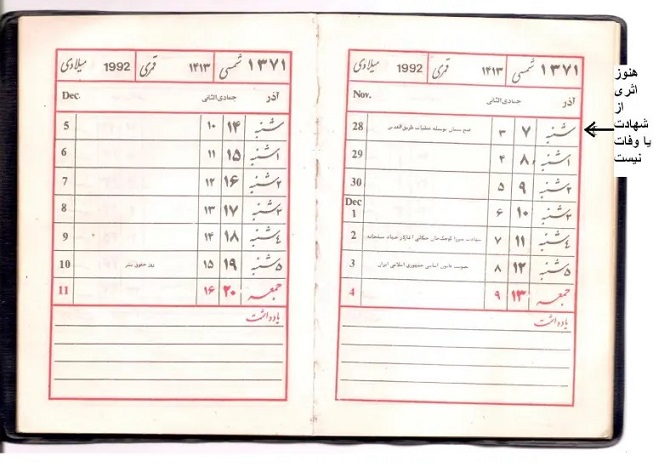 ۱۳۷۱ شمسی ۱۴۱۳ قمری 1992 میلادی
آذر جمادی‌الثانی Nov.
شنبه ۷ ۳ 28
۱شنبه ۸ ۴ 29
۲شنبه ۹ ۵ 30
۳شنبه ۱۰ ۶ Dec 1
۴شنبه ۱۱ ۷ شهادت میرزا کوچک‌خان جنگلی 2
۵شنبه ۱۲ ۸ تصویب قانون اساسی جمهوری اسلامی ایران 3
جمعه ۱۳ ۹ 4
یادداشت
هنوز
اثری
از
شهادت
یا وفات
نیست
۱۳۷۱ شمسی ۱۴۱۳ قمری 1992 میلادی
آذر جمادی‌الثانی Dec.
شنبه ۱۴ ۱۰ 5
۱شنبه ۱۵ ۱۱ 6
۲شنبه ۱۶ ۱۲ 7
۳شنبه ۱۷ ۱۳ 8
۴شنبه ۱۸ ۱۴ 9
۵شنبه ۱۹ ۱۵ روز حقوق بشر 10
جمعه ۲۰ ۱۶ 11
یادداشت